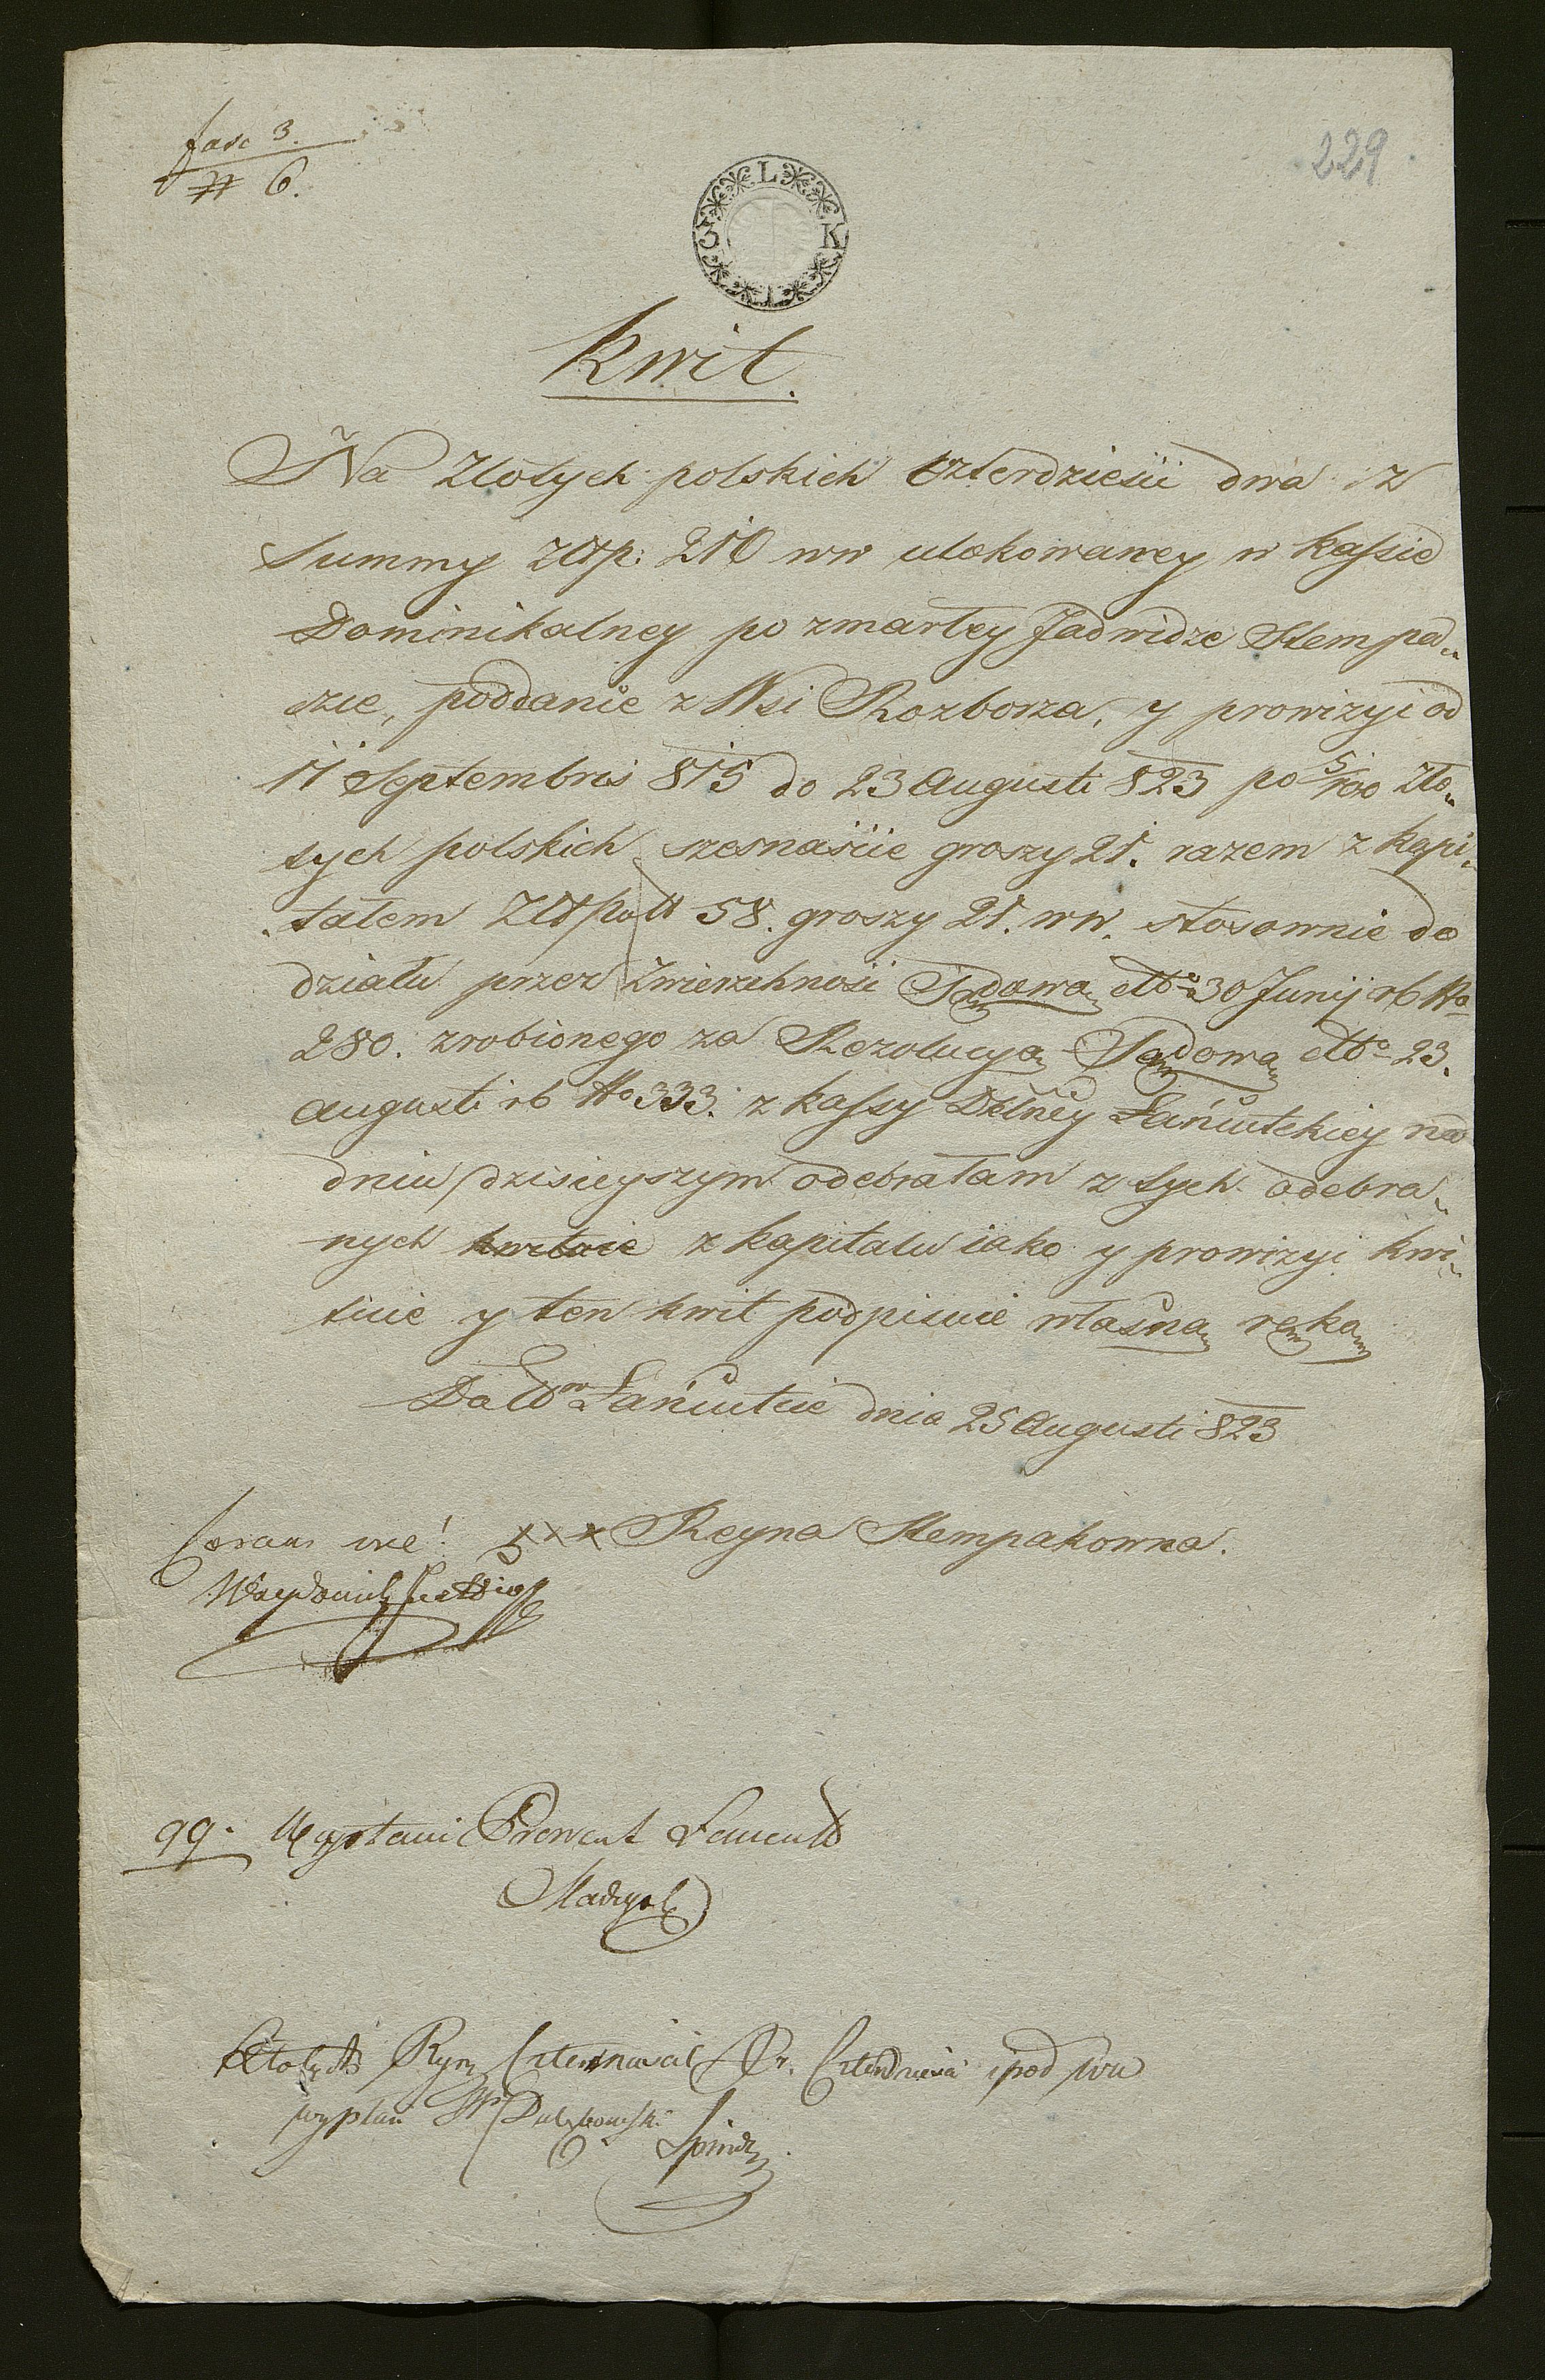 fasc 3.
# 6.
229
L
3 K
Kwit.
Na Złotych polskich czterdzieści dwa z
Summy złtp: 210 ww ulokowaney w kassie
Dominikalney po zmarłey Jadwidze Stempa„
szce, poddanie z Wsi Rozborza, y prowizyi od
11 Septembris 815 do 23 Augusti 823 po 5/100 Zło„
tych polskich szesnaście groszy 21. razem z kapi„
„tałem Złt poll 58. groszy 21. ww. stosownie do
działu przez Zwierzchność Sądową ddto 30 Junij rb No
280. zrobionego za Rezolucyą Sądową ddto 23.
Augusti rb No 333. z kassy Dtlney Łańcutskiey na
dniu dzisieyszym odebrałam z tych odebra„
nych kwituie z kapitału iako y prowizyi kwi„
tuie y ten kwit podpisuie własną ręką
Datt Łańcutcie dnia 25 Augusti 823
Coram me! xxx Reyna Stempakowna.
99.
Ryn
wypłaci